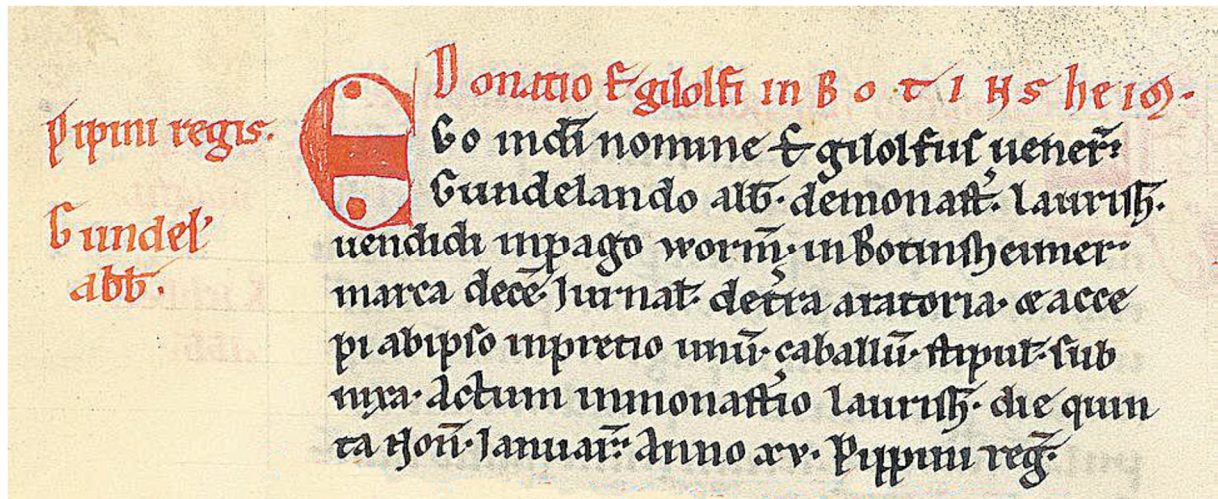 Donatio Egilolfi in Botinsheim.
Pipini regis.
EGo in di nomine Egilolfus uener
Gundel'
abb.
Gundelando abb. de monast. Laurish.
uendidi in pago worm. in Botinsheimer
marca dece. Iurnal. de tra aratoria. & acce
pi ab ipso in precio unu. caballu. stipul. sub
nixa. Actum in monastio laurish. die quin
ta Non. Ianuar. Anno xv. Pippini reg.